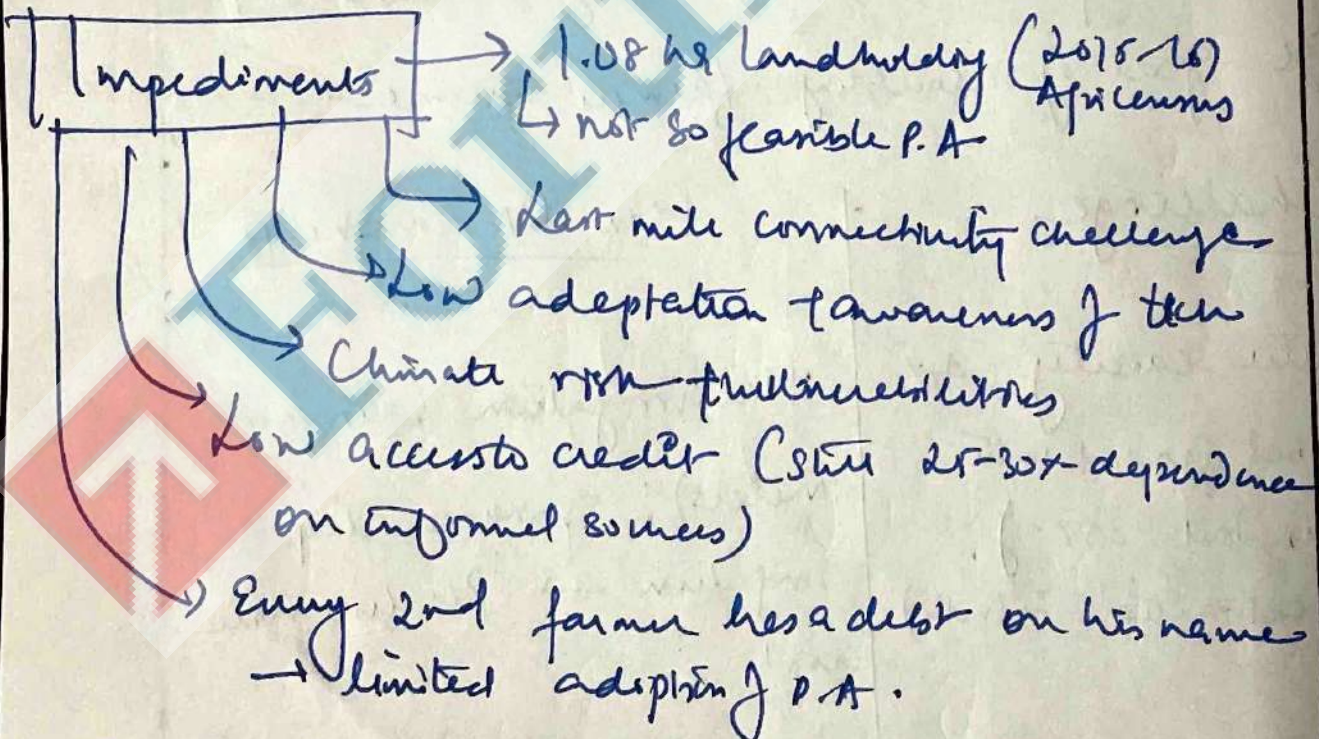 Impediments
→ 1.08 ha landholding (2015-16)
Agricensus
↳ not so feasible P.A
→ Last mile connectivity challenge
→ Low adaptation + awareness of tech
→ Climate risk + vulnerabilities
→ Low access to credit (still 25-30% dependence
on informal sources)
→ Every 2nd farmer has a debt on his name
→ limited adoption of P.A.
Foru